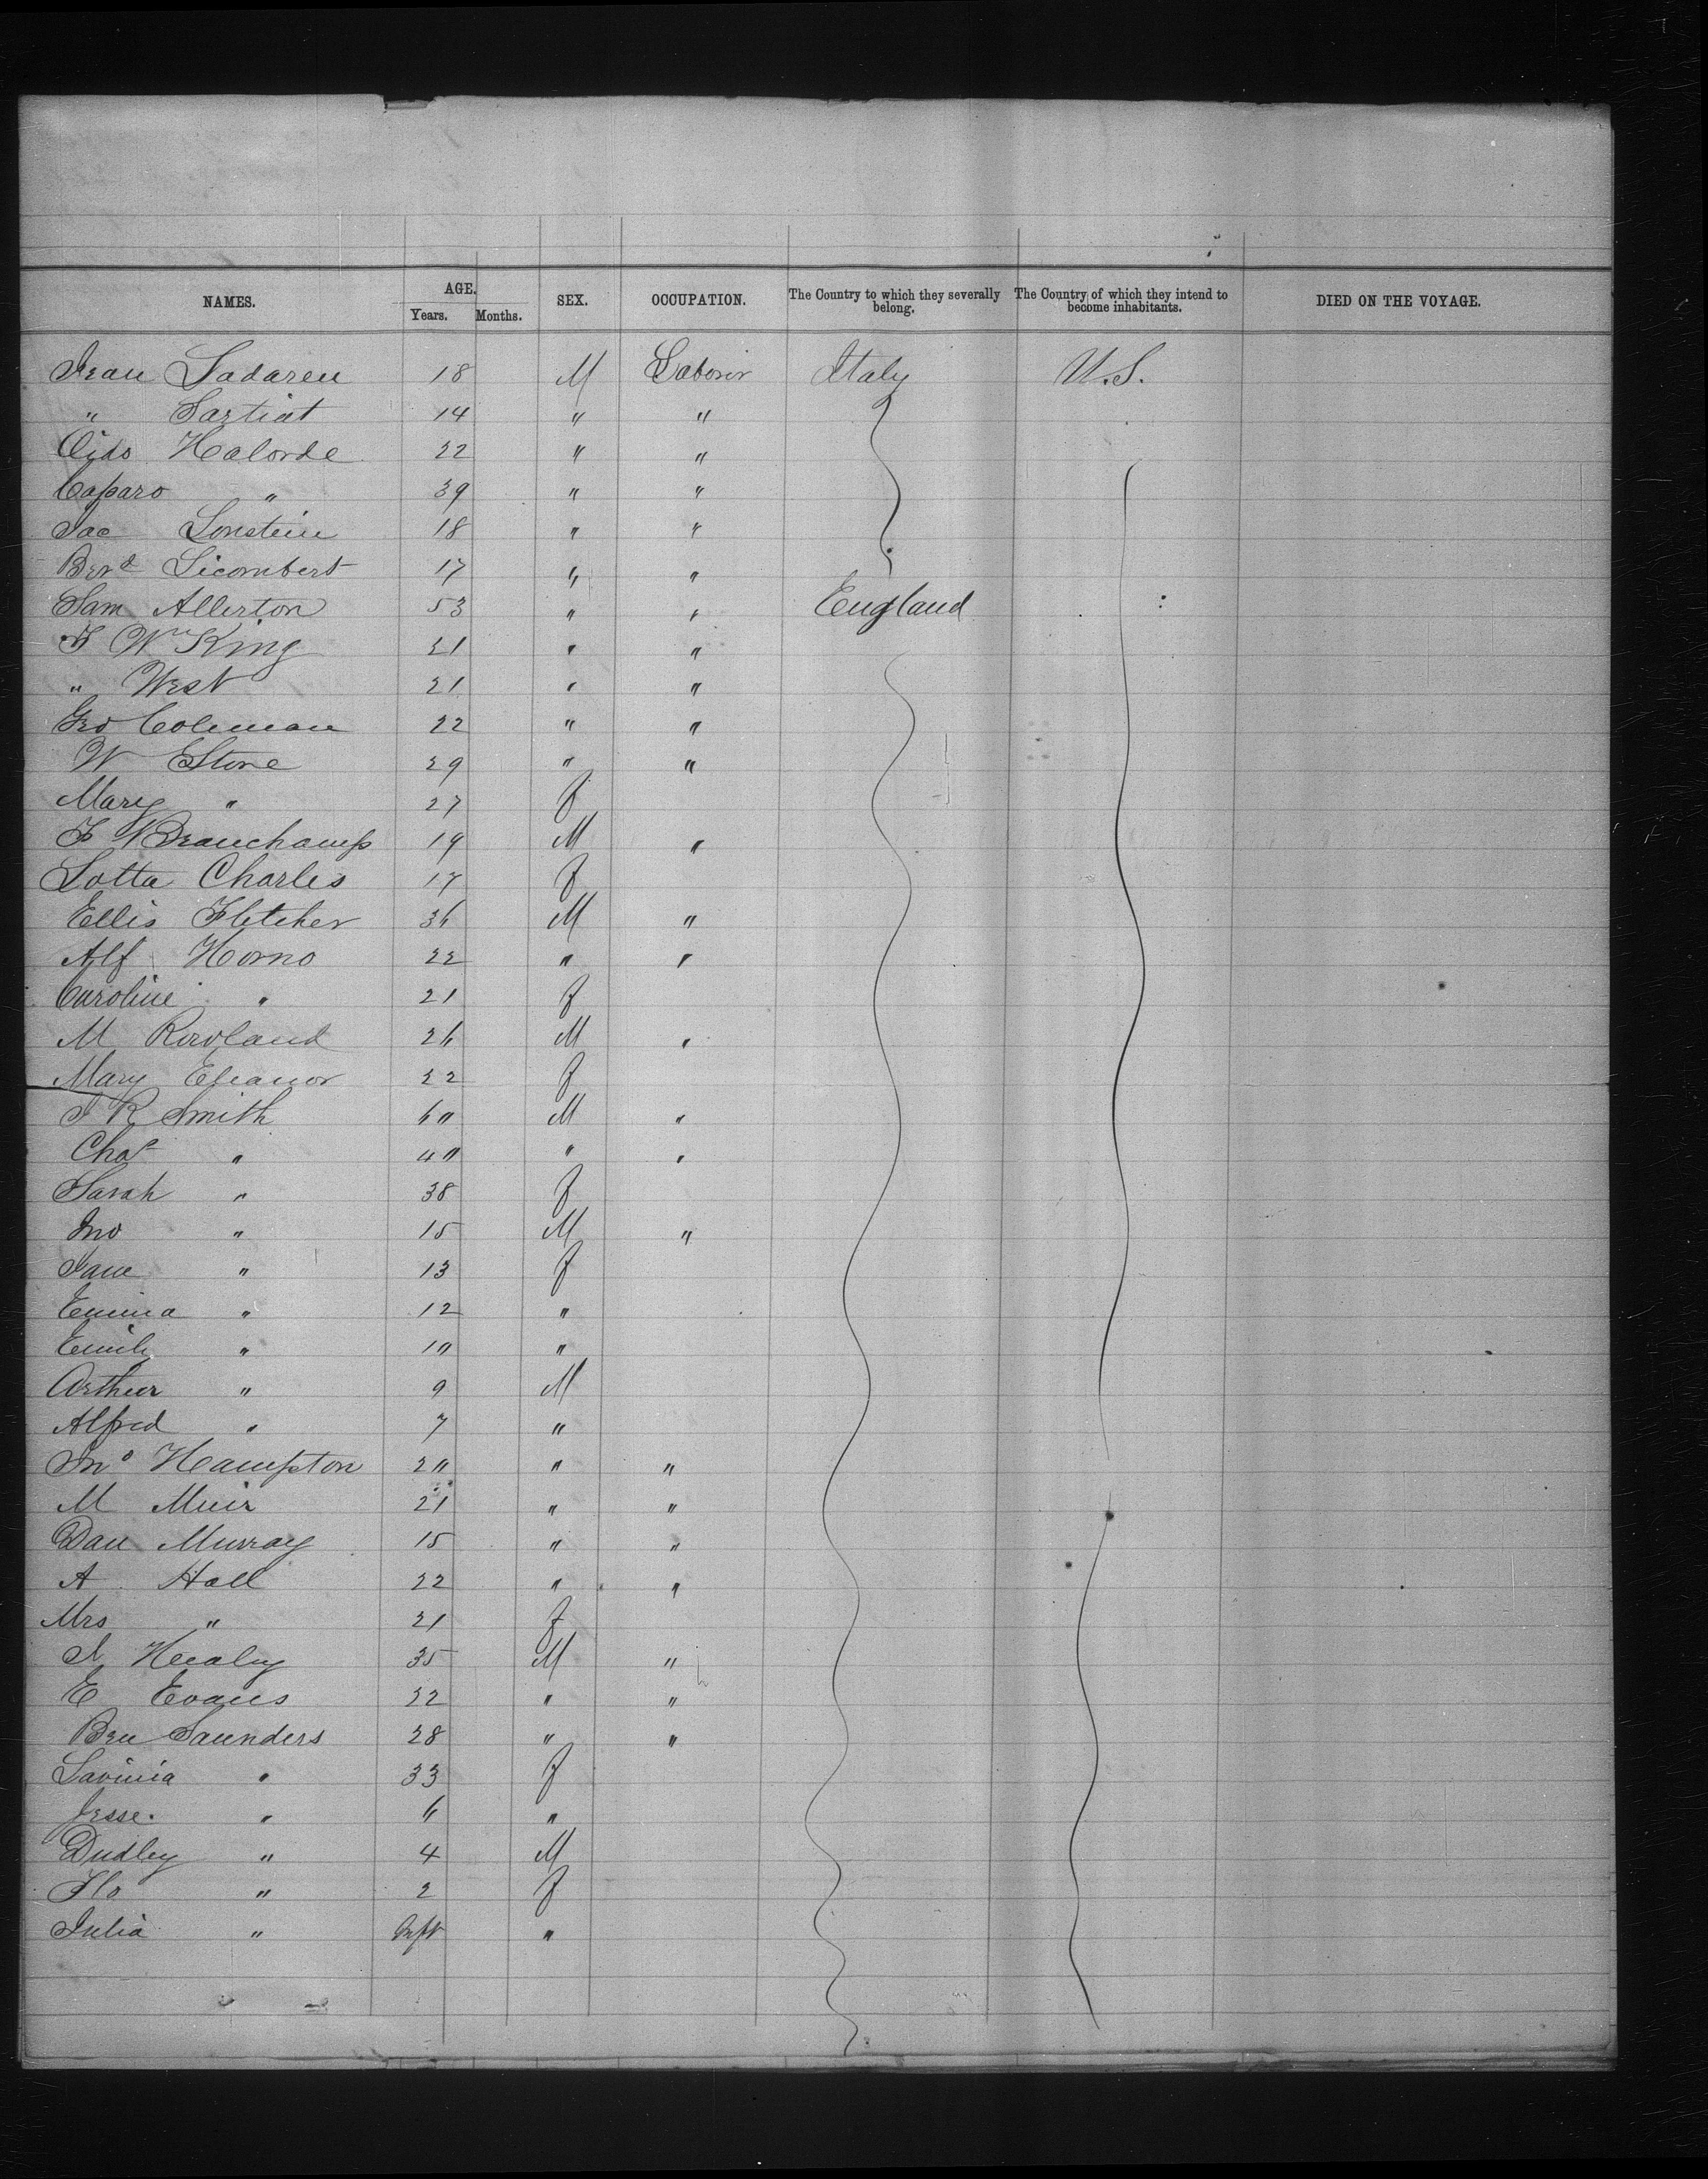 NAMES. AGE. SEX. OCCUPATION. The Country to which they severally belong. The Country of which they intend to become inhabitants. DIED ON THE VOYAGE.
Years. Months.
Jean Ladaren 18 M Laborer Italy U.S.
" Sartiat 14 " "
Halorde 22 " "
Caparo " 39 " "
Jac Lonstein 18 " "
Bern^d Licombert 17 " "
Sam Allerton 53 " " England
F W^m King 21 " "
" West 21 " "
Geo Coleman 22 " "
W Stone 29 " "
Mary " 27 f
F Beauchamp 19 M "
Lotta Charles 17 f
Ellis Fletcher 36 M "
Alf Horno 22 " "
Caroline " 21 f
M Rowland 26 M "
Mary Eleanor 22 f
J R Smith 60 M "
Cha^s " 40 " "
Sarah " 38 f
Jno " 15 M "
Jane " 13 f
Emma " 12 "
Emily " 10 "
Arthur " 9 M
Alfred " 7 "
Jn^o Hampton 20 " "
M Muir 21 " "
Dan Murray 15 " "
A Hall 22 " "
Mrs " 21 f
Healey 35 M "
E Evans 22 " "
Ben Saunders 28 " "
Lavinia " 33 f
Jesse. " 6 "
Dudley " 4 M
Flo " 2 f
Julia " Inft "